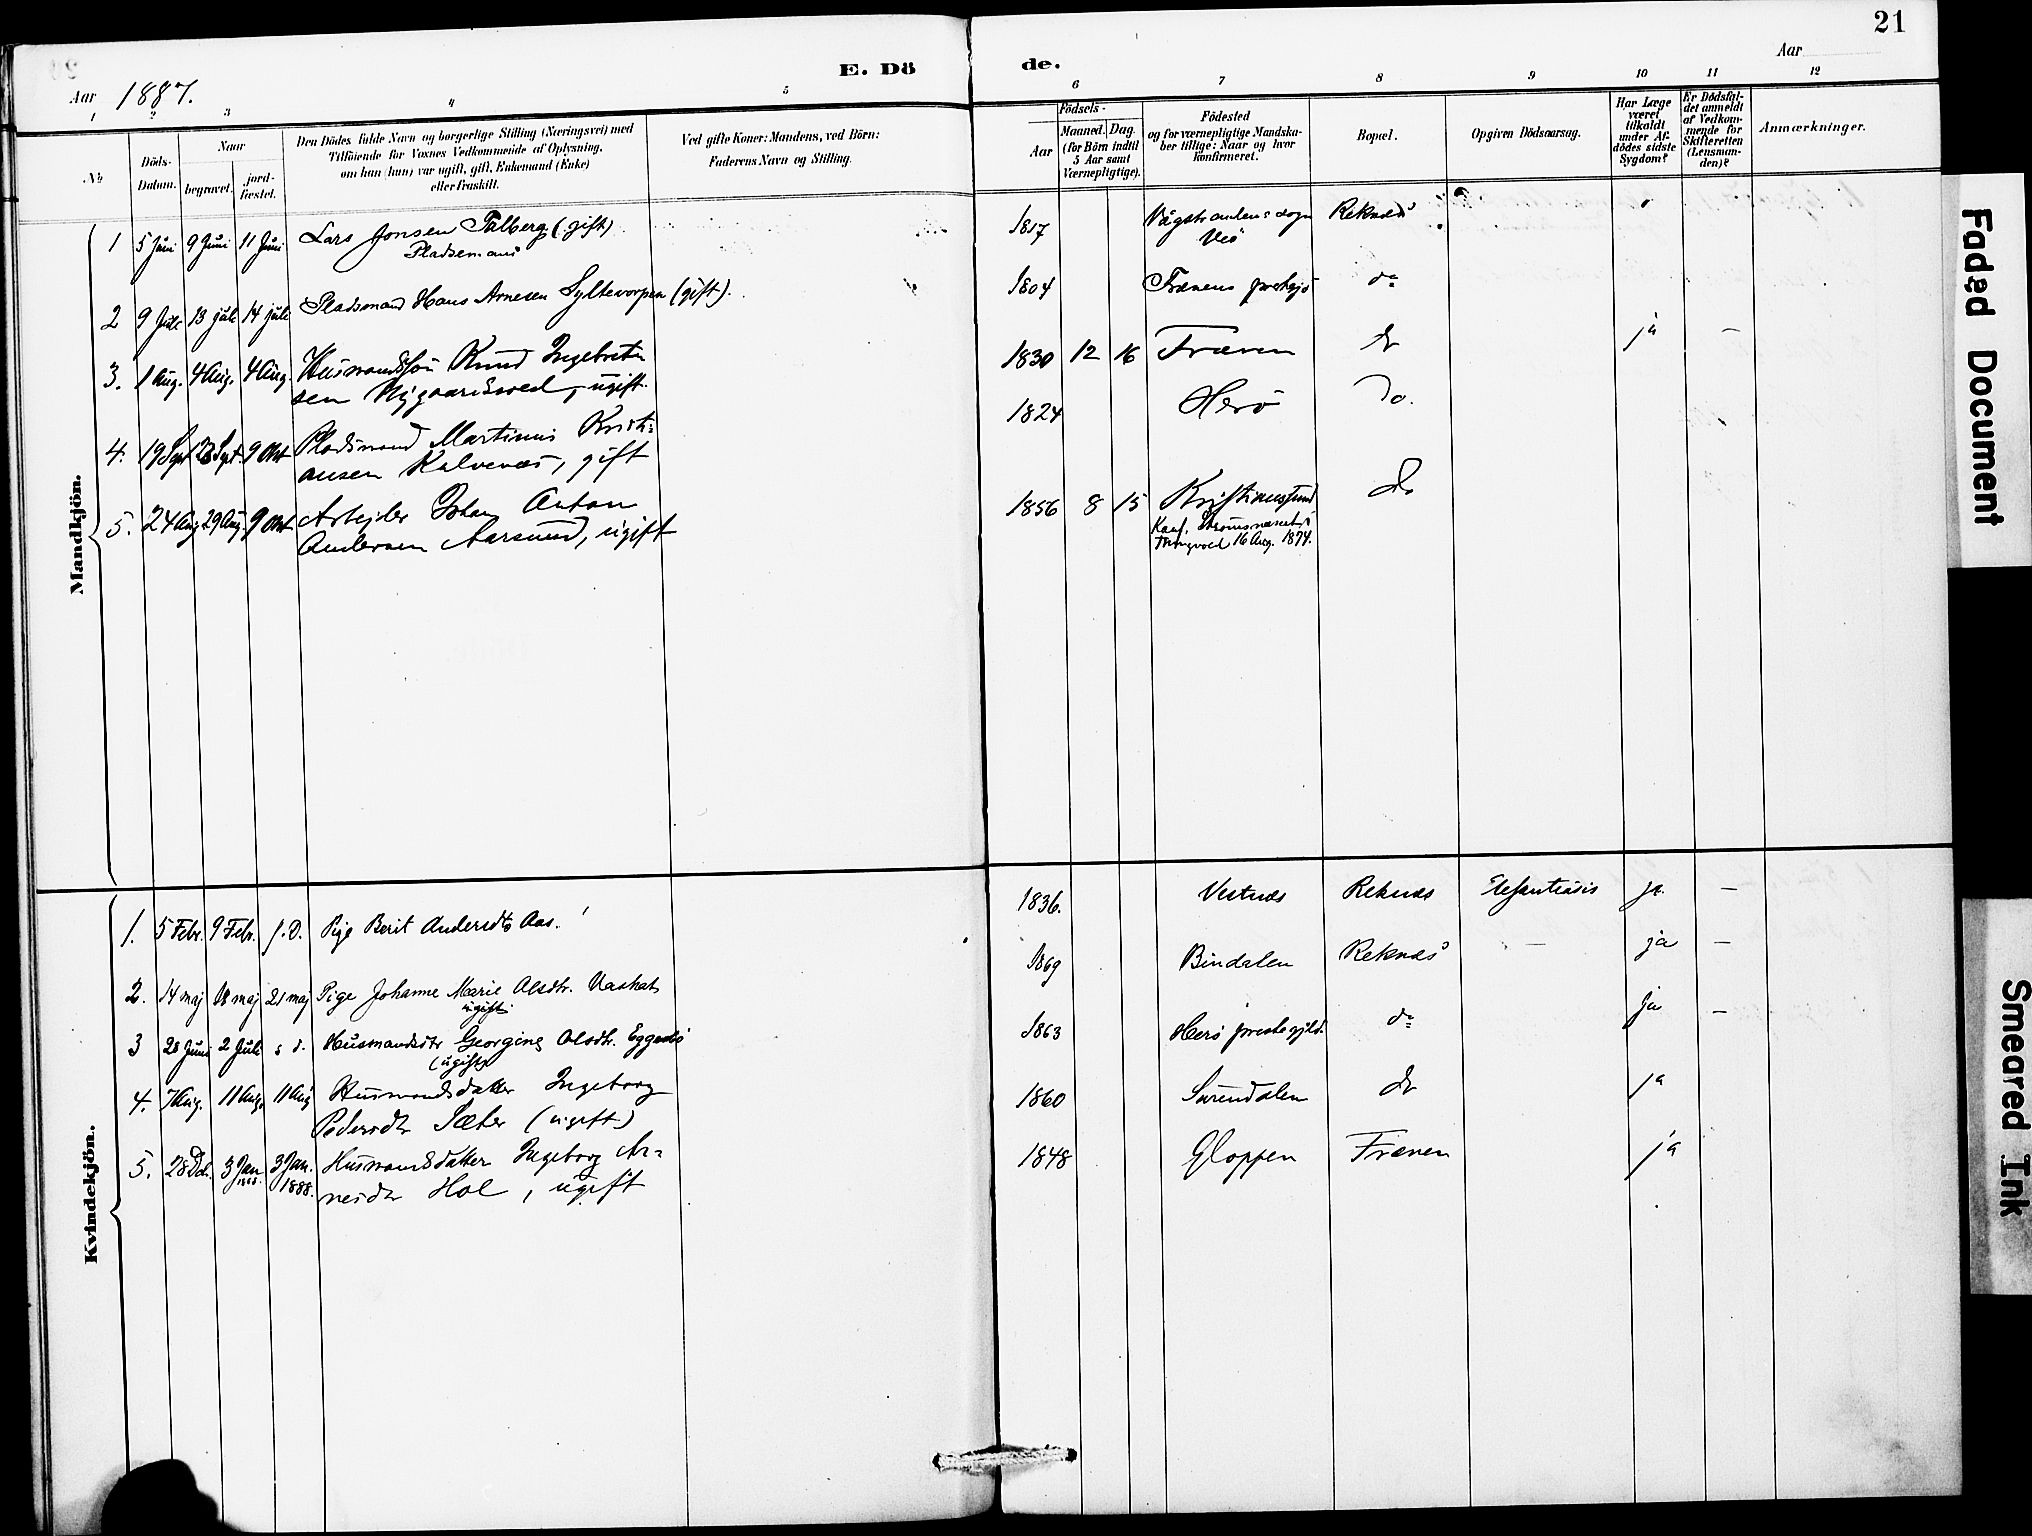 21
E. Dö
de.
Aar 1887.
Aar
1 2 3 4 5 6 7 8 9 10 11 12
№
Döds-Datum.
Naar
begravet.
jord-fæstet.
Den Dödes fulde Navn og borgerlige Stilling (Næringsvei) med
Tilföiende for Voxnes Vedkommende af Oplysning,
om han (hun) var ugift, gift, Enkemand (Enke)
eller fraskilt.
Ved gifte Koner: Mandens, ved Börn:
Faderens Navn og Stilling.
Födsels-
Aar
Maaned. Dag.
(for Börn indtil
5 Aar samt
Værnepligtige).
Födested
og for værnepligtige Mandska-
ber tillige: Naar og hvor
konfirmeret.
Bopæl.
Opgiven Dödsaarsag.
Har Læge
været
tilkaldt
under Af-
dödes sidste
Sygdom?
Er Dödsfal-
det anmeldt
af Vedkom-
mende for
Skifteretten
(Lensman-
den)?
Anmærkninger.
Mandkjön.
1 5 Juni 9 Juni 11 Juni Lars Jonsen Talberg (gift) 1817 Vågstrandens sogn Reknæs
Pladsemand Veö
2 9 Juli 13 juli 14 juli Pladsmand Hans Arnesen (gift). 1804 Frænens do
3. 1 Aug. 4 Aug. 4 Aug. Husmandssön Knud Ingebrigt- 1830 12 16 Frænen do ja —
sen Nygaardsved, ugift.
4. 19 Sept 23 Sept. 9 Okt Pladsmand Martinus Kristi= 1824 Herö Do.
ansen Kalvenes, gift
5. 24 Aug 29 Aug. 9 Okt Arbejder Johan Anton 1856 8 15 Kristiansund do
Andersen Aarsund, ugift
Konf.
Tingvold 16 Aug. 1874.
Kvindekjön.
1. 5 Febr. 9 Febr. s. D. Pige Berit Andersdtr Aas. 1836. Vestnæs Reknæs Elefantiasis ja —
2. 14 maj 18 maj 21 maj Pige Johanne Marie Olsdtr. 1869 Bindalen Reknæs — ja —
ugift.
3 28 Juni 2 Juli s d. Husmandsdtr Georgine Olsdtr. Eggesbö 1863 Herö prestegjld. do ja —
(ugift)
4. 7 Aug. 11 Aug. 11 Aug Husmandsdatter Ingeborg 1860 Surendalen do ja
Pedersdtr Sæter (ugift)
5. 28 Dec. 3 Jan 1888. 3 Jan. 1888. Husmandsdatter Ingeborg Ar= 1848 Gloppen Frænen ja
nesdtr Hol, ugift
Faded Document
Smeared Ink